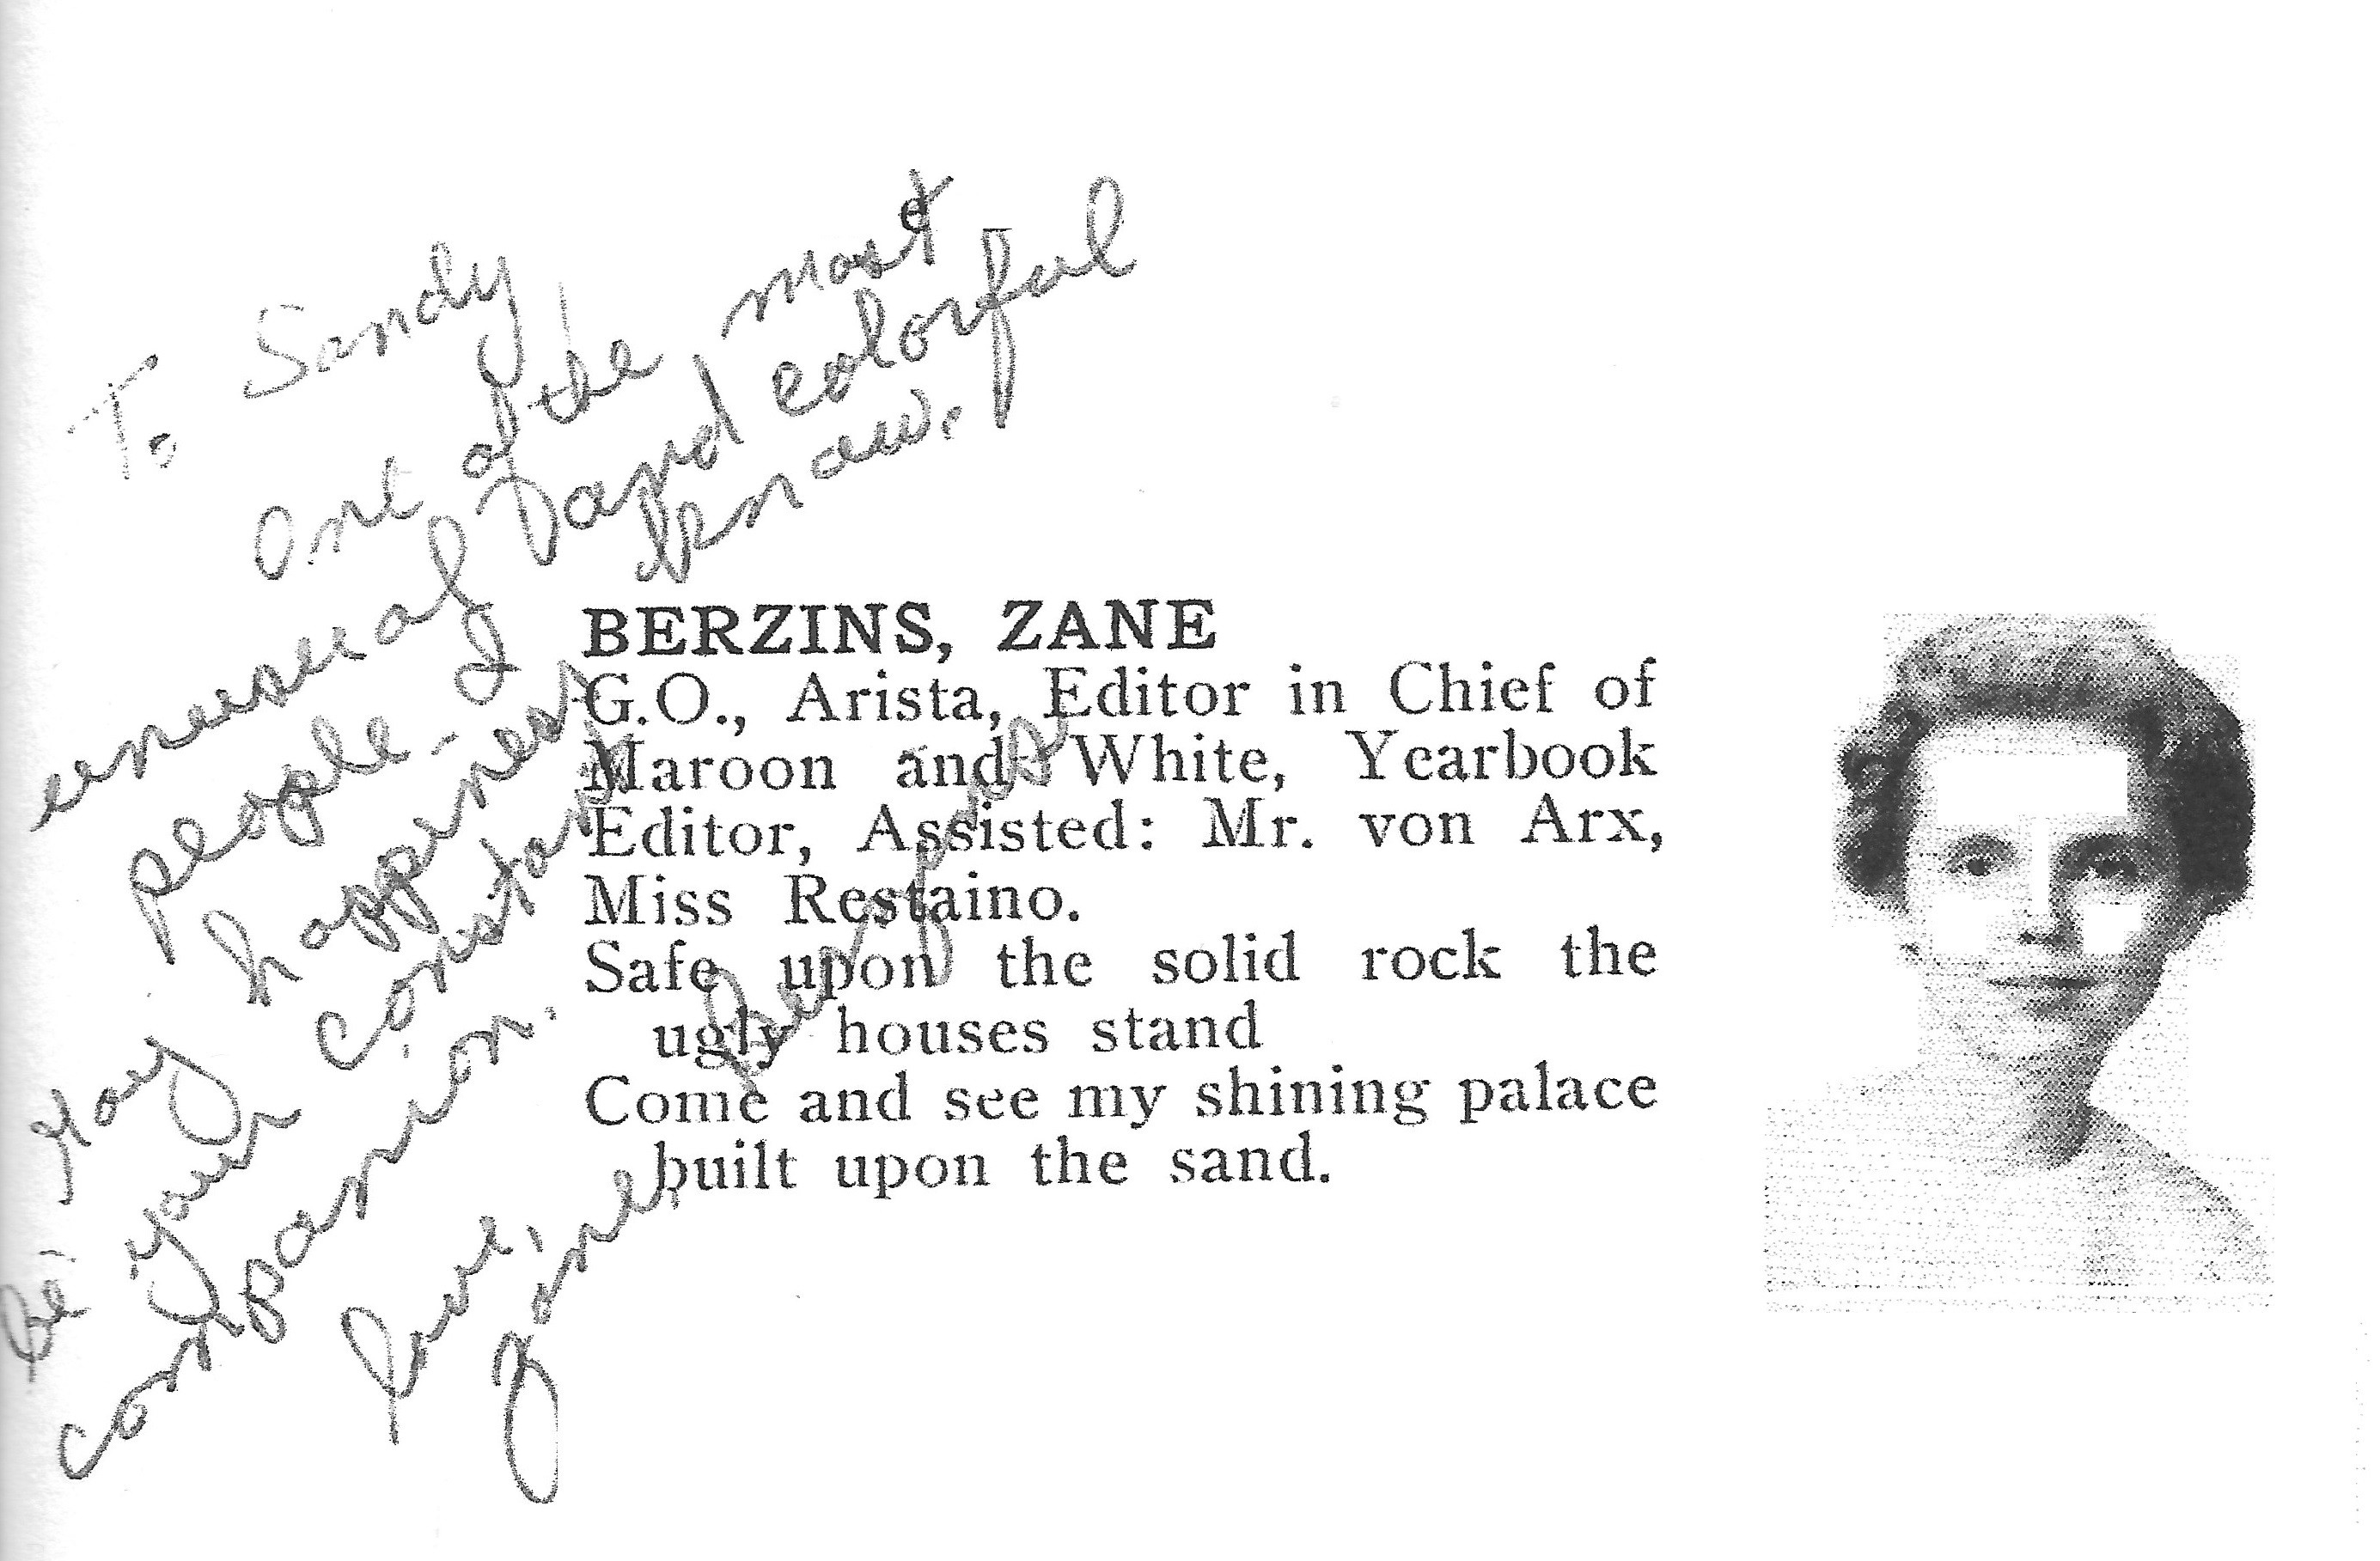 To Sandy
One of the most
unusual and colorful
people I know.
May happiness
be your constant
companion.
Love,
Zane
BERZINS, ZANE
G.O., Arista, Editor in Chief of
Maroon and White, Yearbook
Editor, Assisted: Mr. von Arx,
Miss Restaino.
Safe upon the solid rock the
ugly houses stand
Come and see my shining palace
built upon the sand.